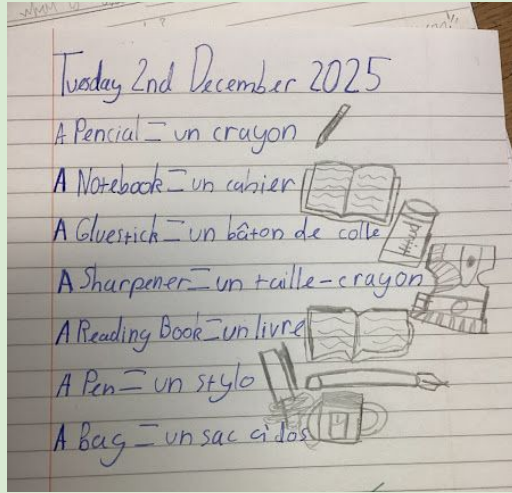 Tuesday 2nd December 2025
A Pencial = un crayon
A Notebook = un cahier
A Gluestick = un bâton de colle
A Sharpener = un taille-crayon
A Reading Book = un livre
A Pen = un stylo
A Bag = un sac à dos